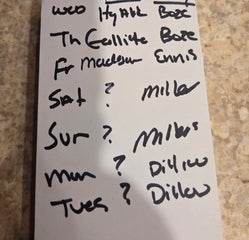 Wed Hyatt Boze
Th Gallitin Boze
Fr Madison Ennis
Sat ? Miller
Sun ? Millers
Mun ? Dillow
Tues ? Dillow